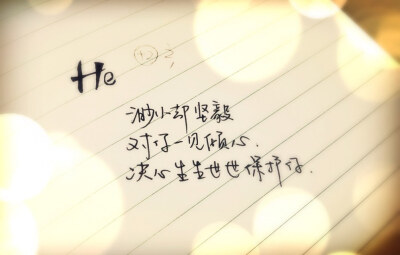 He
渺小却坚毅
对仔一见倾心.
决心生生世世保护仔.